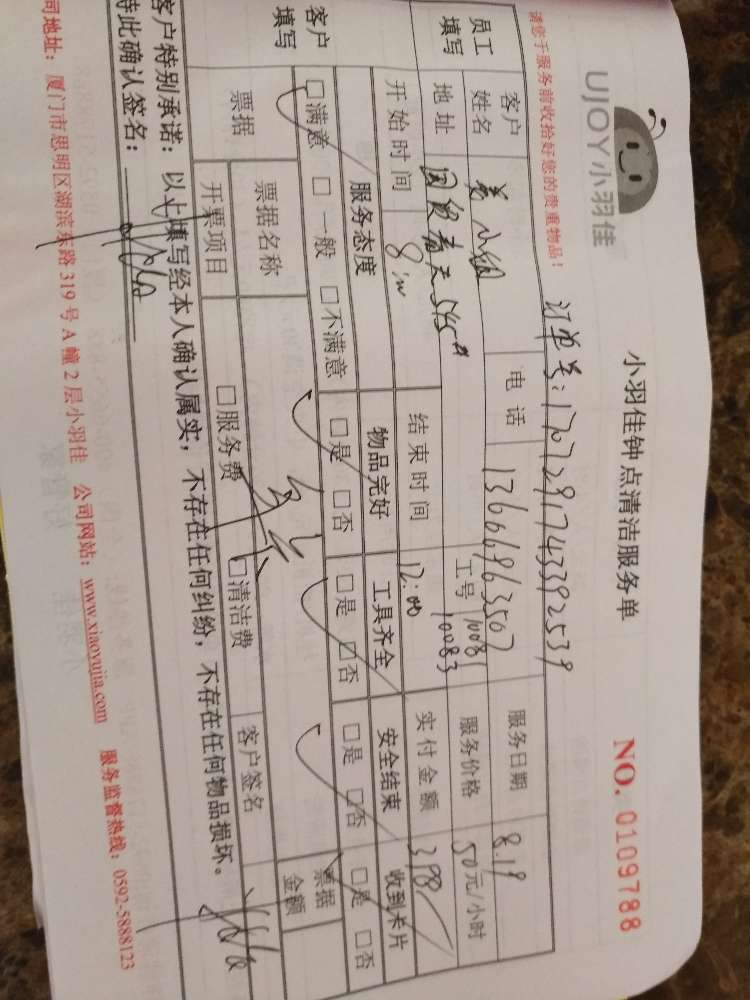 UJOY小羽佳
小羽佳钟点清洁服务单
NO. 0109788
请您于服务前收拾好您的贵重物品!
订单号:1707291743392539
员工填写
客户姓名
姜小姐
电话
13666963507
服务日期
8.19
地址
545#
工号
10081
10083
服务价格
50元/小时
开始时间
8:00
结束时间
12:00
实付金额
398
客户填写
服务态度
物品完好
工具齐全
安全结束
收到卡片
□满意 □一般 □不满意
□是 □否
□是 □否
□是 □否
□是 □否
票据
票据名称
票据金额
开票项目
□服务费
□清洁费
客户签名
客户特别承诺:以上填写经本人确认属实,不存在任何纠纷,不存在任何物品损坏。
特此确认签名:
司地址:厦门市思明区湖滨东路319号A幢2层小羽佳 公司网站:www.xiaoyujia.com 服务监督热线:0592-5888123